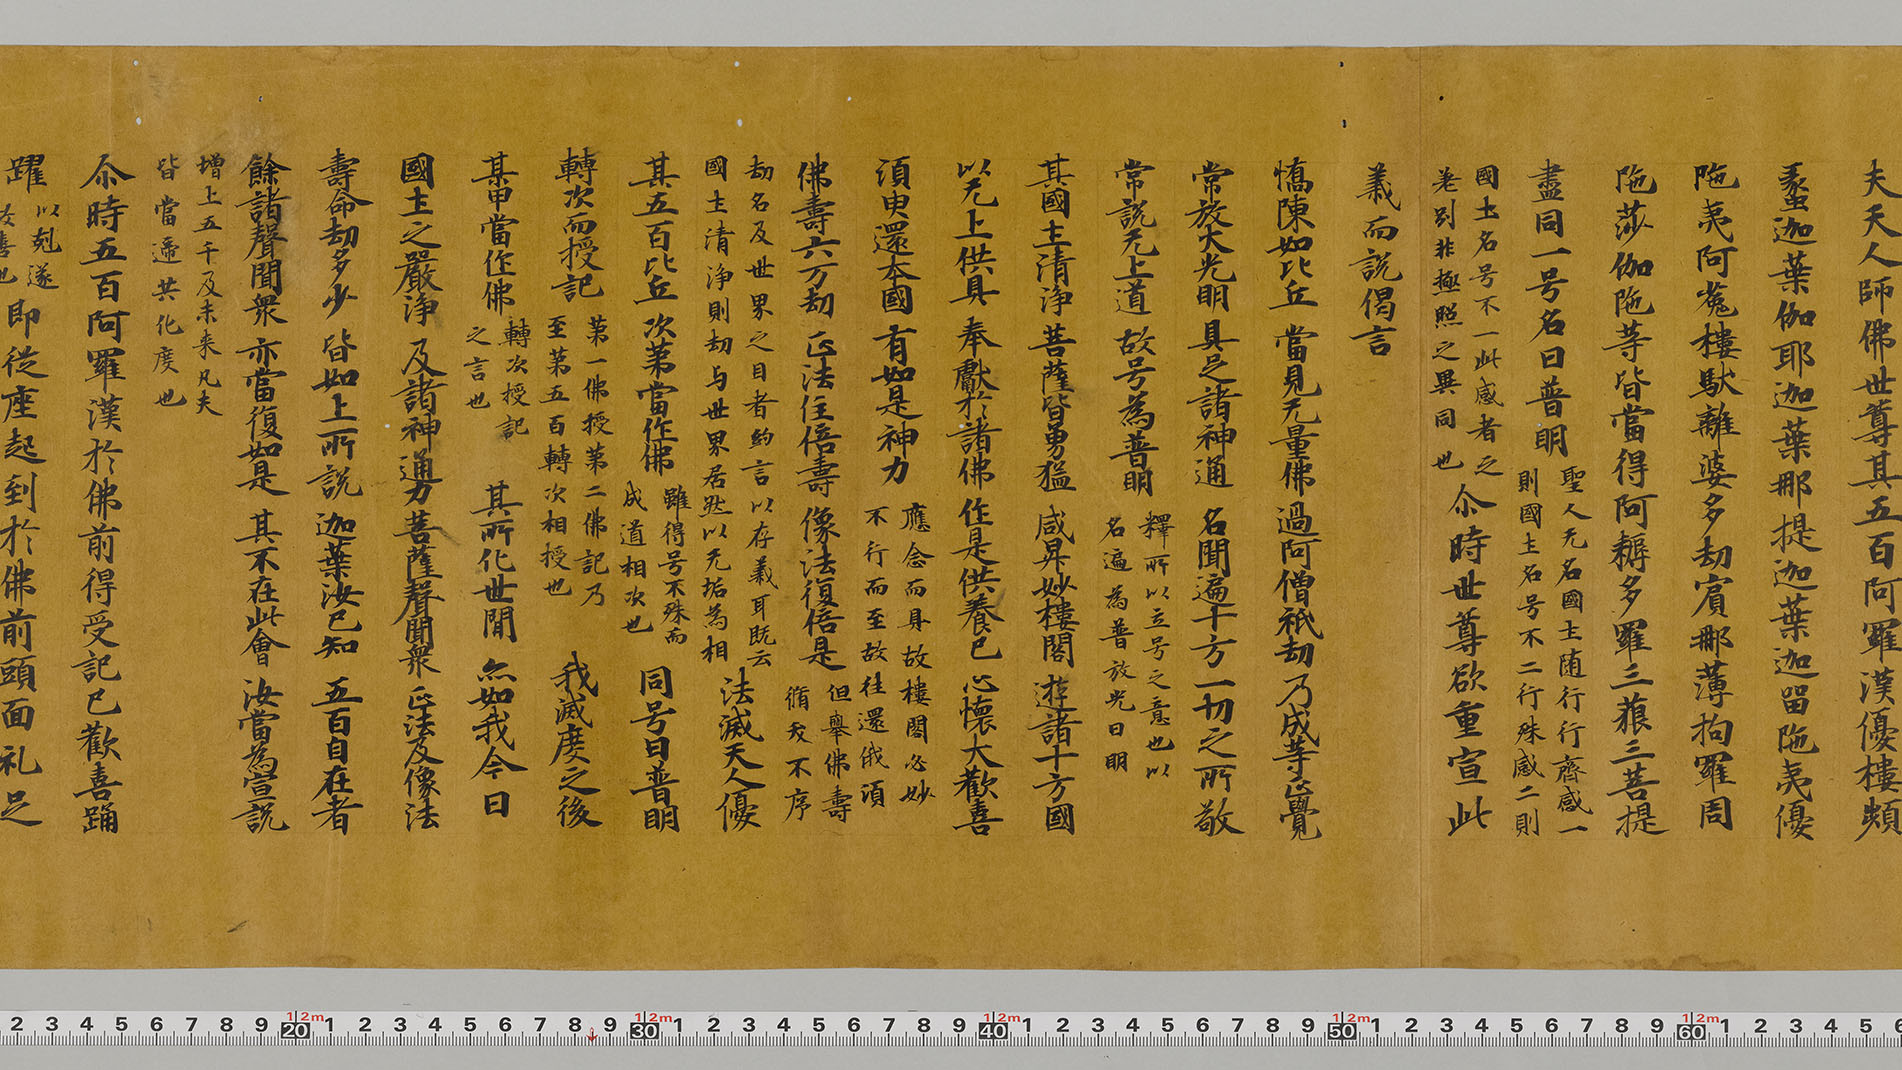 夫天人師佛世尊其五百阿羅漢優樓頻
蠡迦葉伽耶迦葉那提迦葉迦留陁夷優
陁夷阿㝹樓馱離婆多劫賓那薄拘羅周
陁莎伽陁等皆當得阿耨多羅三藐三菩提
盡同一号名曰普明
聖人无名國土随行行齊感一
則國土名号不二行殊感二則
國土名号不一此感者之
差別非極照之異同也
尒時世尊欲重宣此
義而說偈言
憍陳如比丘 當見无量佛 過阿僧祇劫 乃成等正覺
常放大光明 具足諸神通 名聞遍十方 一切之所敬
常說无上道 故号為普明
釋所以立号之意也以
名遍為普放光曰明
其國土清淨 菩薩皆勇猛 咸昇妙樓閣 遊諸十方國
以无上供具 奉獻於諸佛 作是供養已 心懷大歡喜
須臾還本國 有如是神力
應念而具故樓閣必妙
不行而至故往還俄須
佛壽六万劫 正法住倍壽 像法復倍是
但舉佛壽
脩夭不序
劫名及世界之目者約言以存義耳既云
國土清淨則劫与世界居然以无垢為相
法滅天人優
其五百比丘 次第當作佛
雖得号不殊而
成道相次也
同号曰普明
轉次而授記
第一佛授第二佛記乃
至第五百轉次相授也
我滅度之後
某甲當作佛
轉次授記
之言也
其所化世間 亦如我今日
國土之嚴淨 及諸神通力 菩薩聲聞衆 正法及像法
壽命劫多少 皆如上所說 迦葉汝已知 五百自在者
餘諸聲聞衆 亦當復如是 其不在此會 汝當為宣說
增上五千及未来凡夫
皆當遞共化度也
尒時五百阿羅漢於佛前得受記已歡喜踊
躍
以剋遂
故喜也
即從座起到於佛前頭面礼足